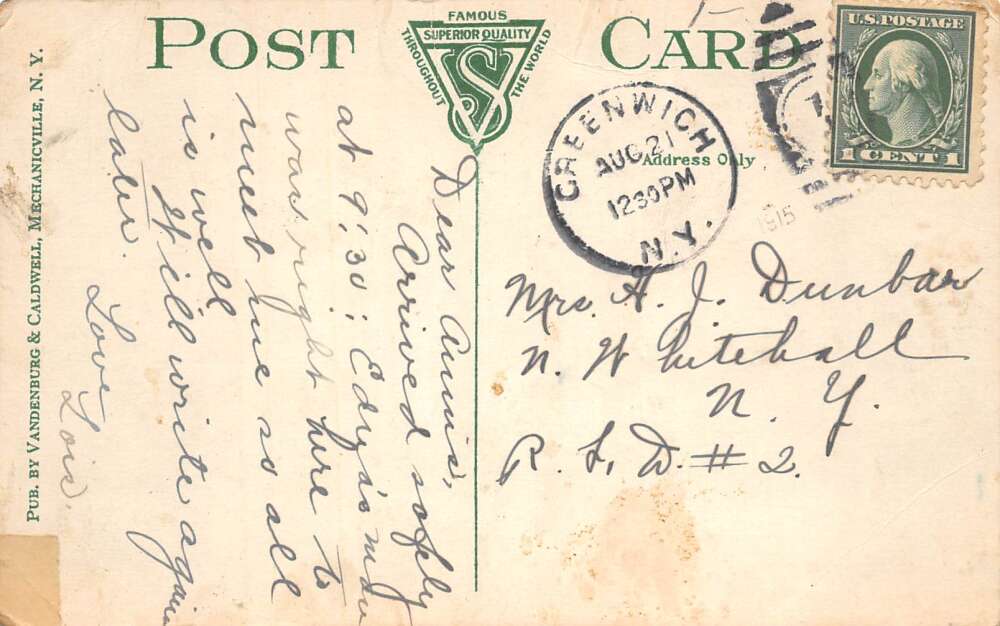 POST CARD
FAMOUS
SUPERIOR QUALITY
THROUGHOUT
THE WORLD
VS
Address Only
GREENWICH
AUG 21
1230PM
N.Y.
1915
U.S. POSTAGE
1 CENT 1
PUB. BY VANDENBURG & CALDWELL, MECHANICVILLE, N. Y.
Dear Annis,
Arrived safely
at 9:30:
was right here to
meet me so all
is well
I'll write again
later.
Love
Lois.
Mrs. H. J. Dunbar
N. Whitehall
N. Y.
R. F. D. # 2.